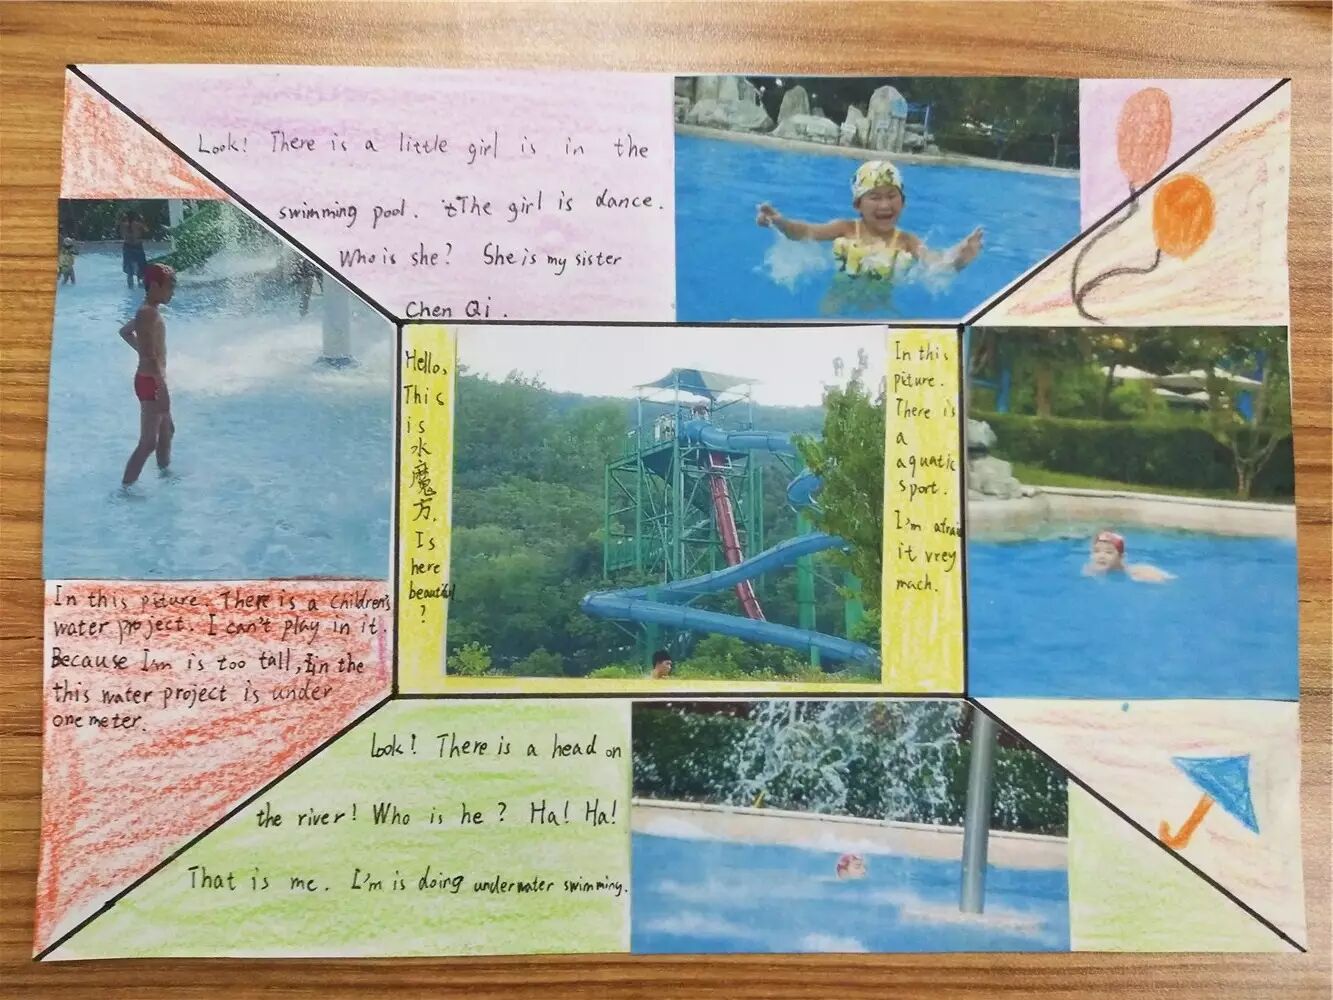 Look! There is a little girl is in the
swimming pool. The girl is dance.
Who is she? She is my sister
Chen Qi.
Hello,
This
is
水
魔
方.
Is
here
beautiful
?
In this
picture.
There is
a
aquatic
sport.
I'm afraid
it vrey
mach.
In this picture. There is a children's
water project. I can't play in it.
Because I'm is too tall, in the
this water project is under
one meter.
Look! There is a head on
the river! Who is he? Ha! Ha!
That is me. I'm is doing underwater swimming.